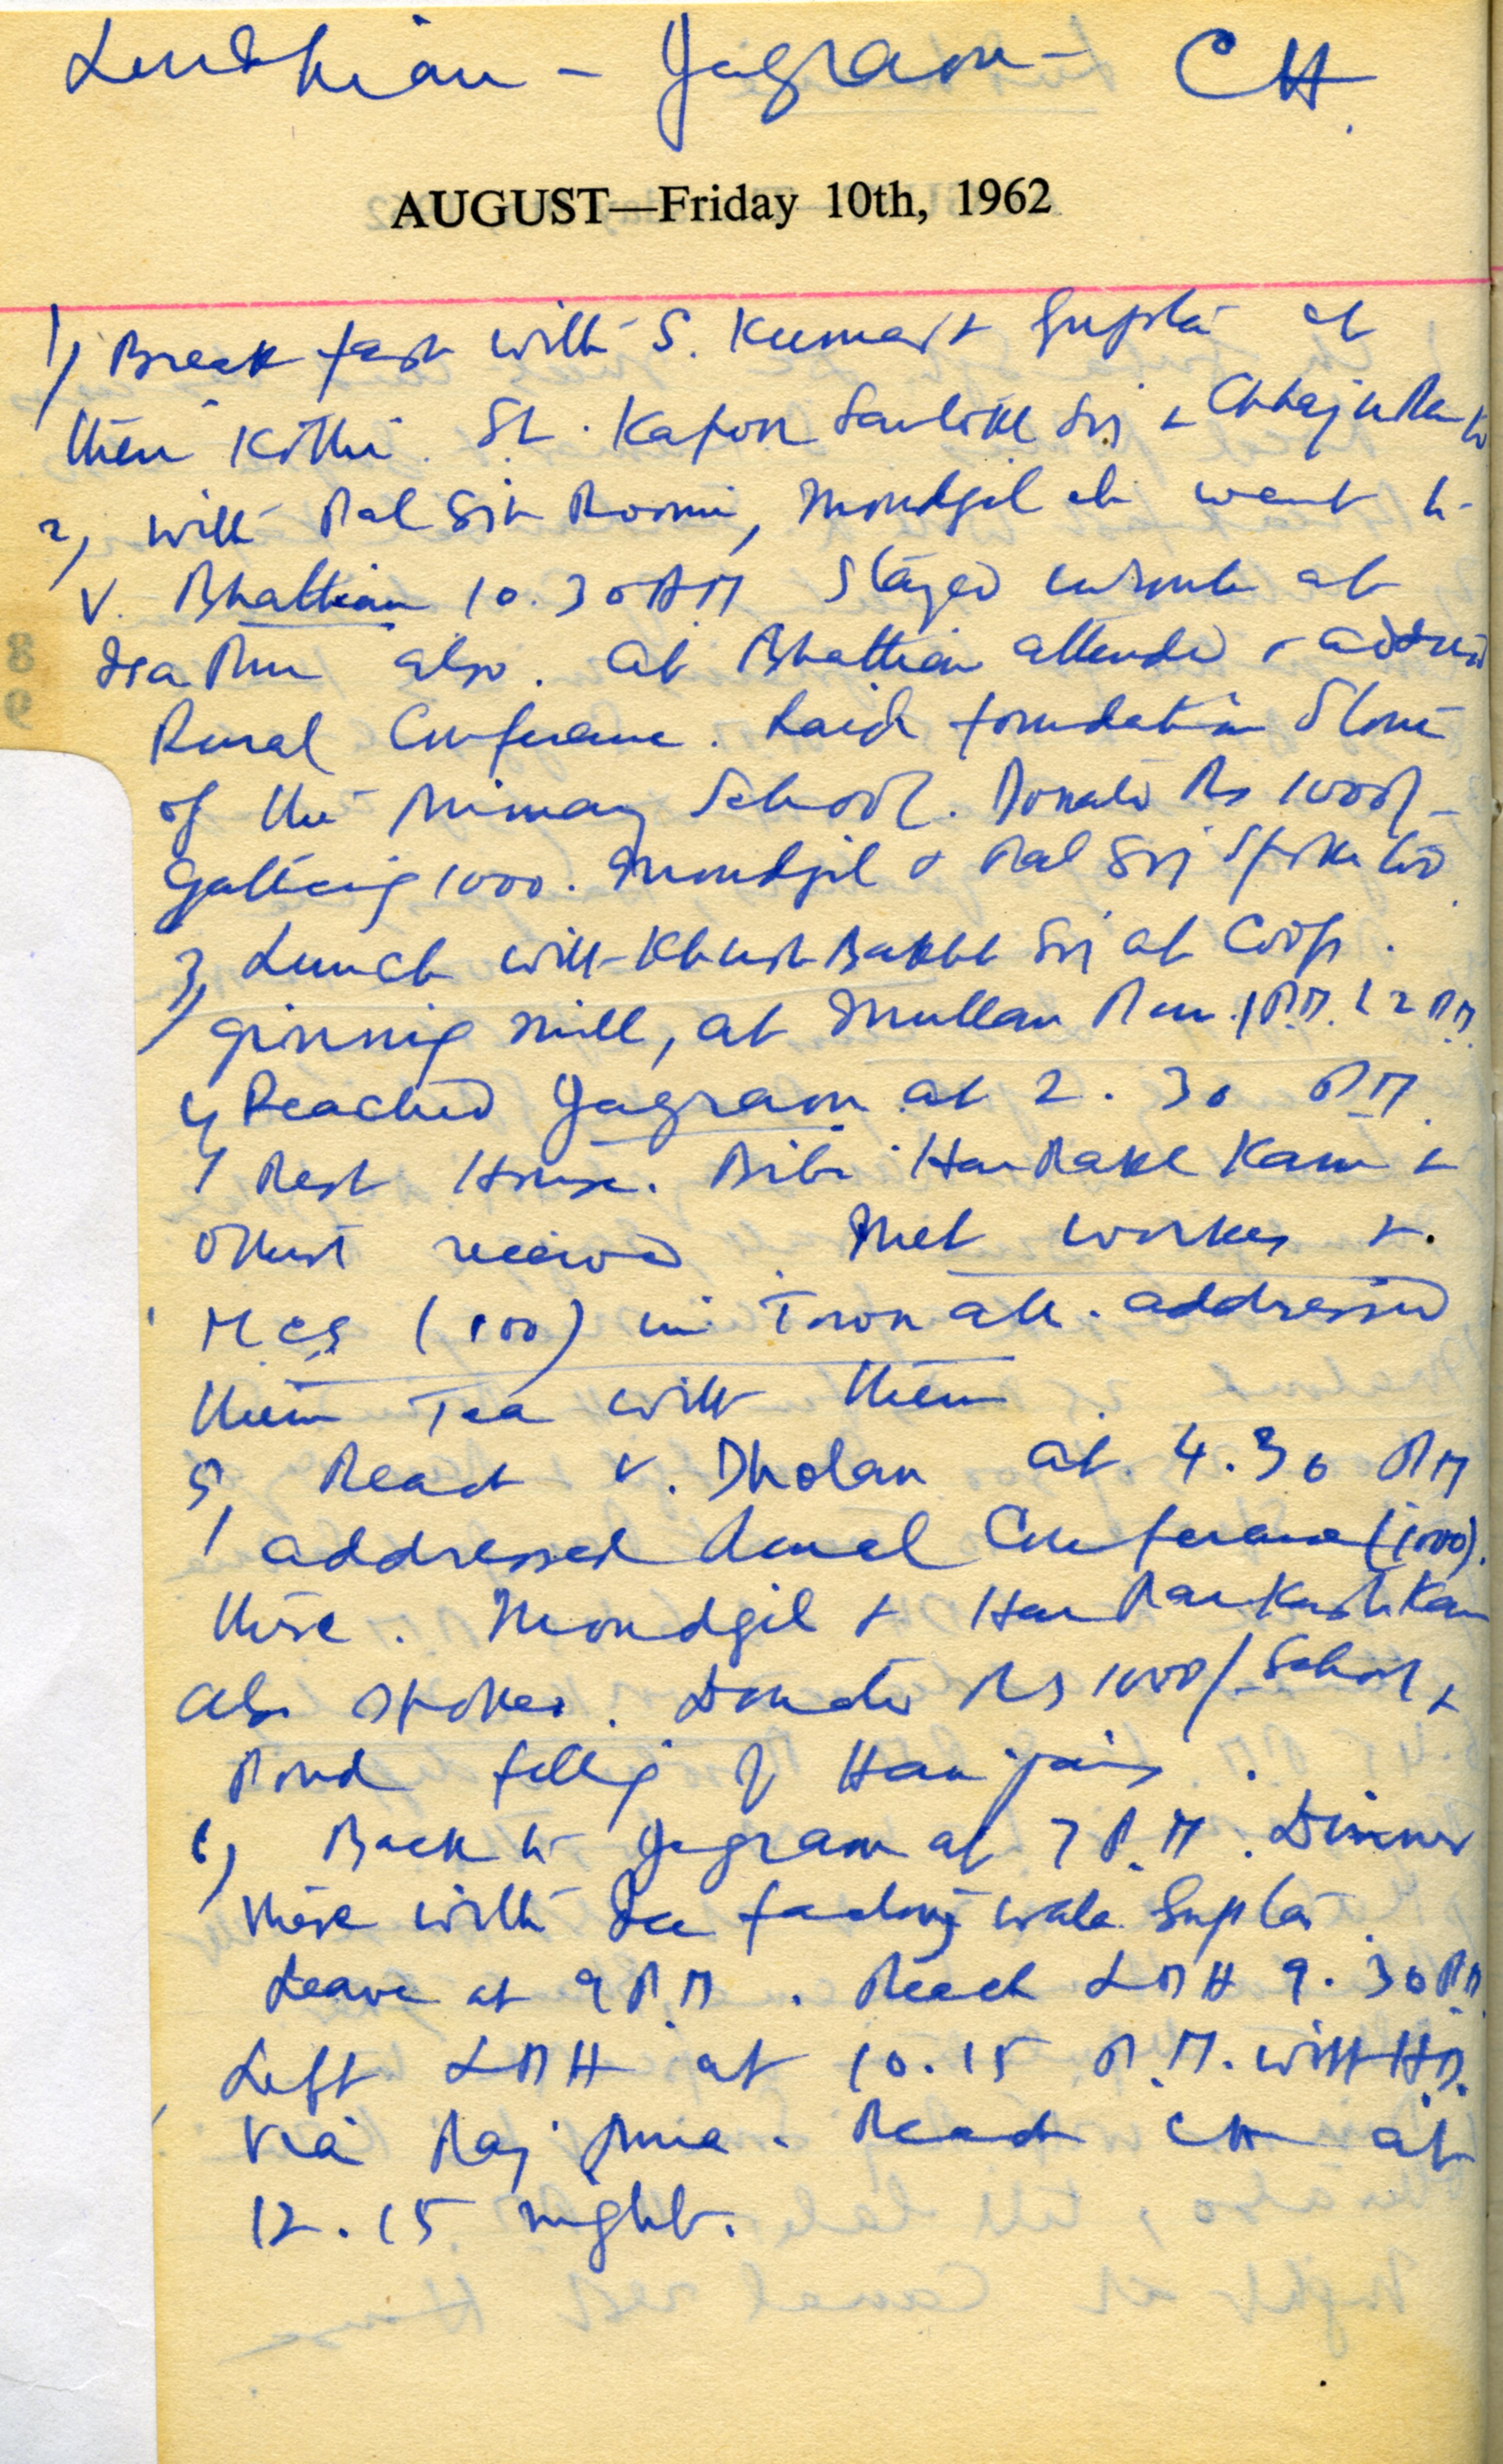 Ludhiana - Jagraon - CH.
AUGUST—Friday 10th, 1962
1) Break fast with S. Kumar & Gupta at
their Kothi. Sh. Kapoor Singh &
2) with Pal Singh Roomi, Mondgil etc went to
V. Bhattian 10.30 AM Stayed enroute at
also. at Bhattian attended & addressed
Rural Conference. Laid foundation Stone
of the Primary School. Donated Rs 1000/-
Gathering 1000. Mondgil & Pal Singh Spoke too.
3) Lunch with Khush Bakht Singh at Coop.
ginning mill, at Mullan Pur. 1 P.M. to 2 P.M.
4) Reached Jagraon at 2.30 PM.
Rest House. Bibi Har Kaur &
others received. Met workers &
MCs (100) in Town Hall. addressed
them Tea with them
5) Reach V. Dholan at 4.30 PM
addressed Rural Conference (1000).
there. Mondgil & Har Parkash Kaur
also spoke. Donated Rs 1000/- School &
Pond filling of Harijans.
6) Back to Jagraon at 7 P.M. Dinner
there with Ice factory wala Gupta.
Leave at 9 P.M. Reach LDH 9.30 P.M.
Left LDH at 10.15 P.M. with
via Raj Pura. Reach CH at
12.15 night.